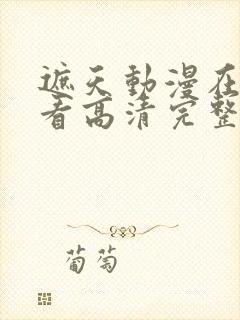 遮天動漫在
看高清完整
葡萄